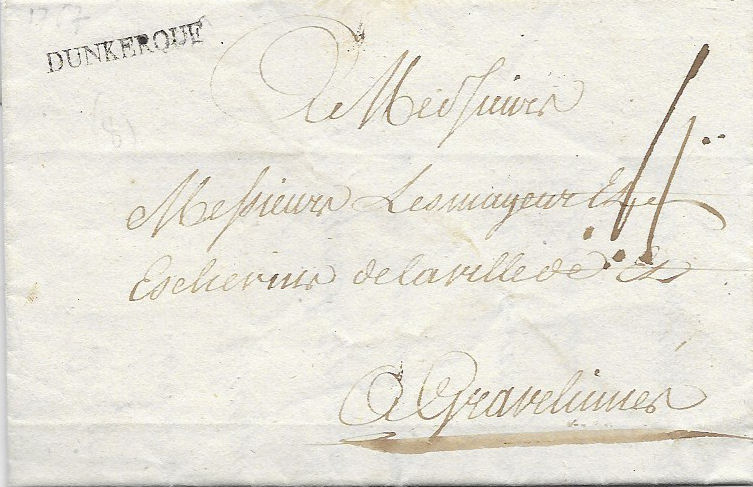 1757
DUNKERQUE
A Messieurs
Messieurs Lesmayeur Et
Eschevins delaville de &
A Gravelinnes